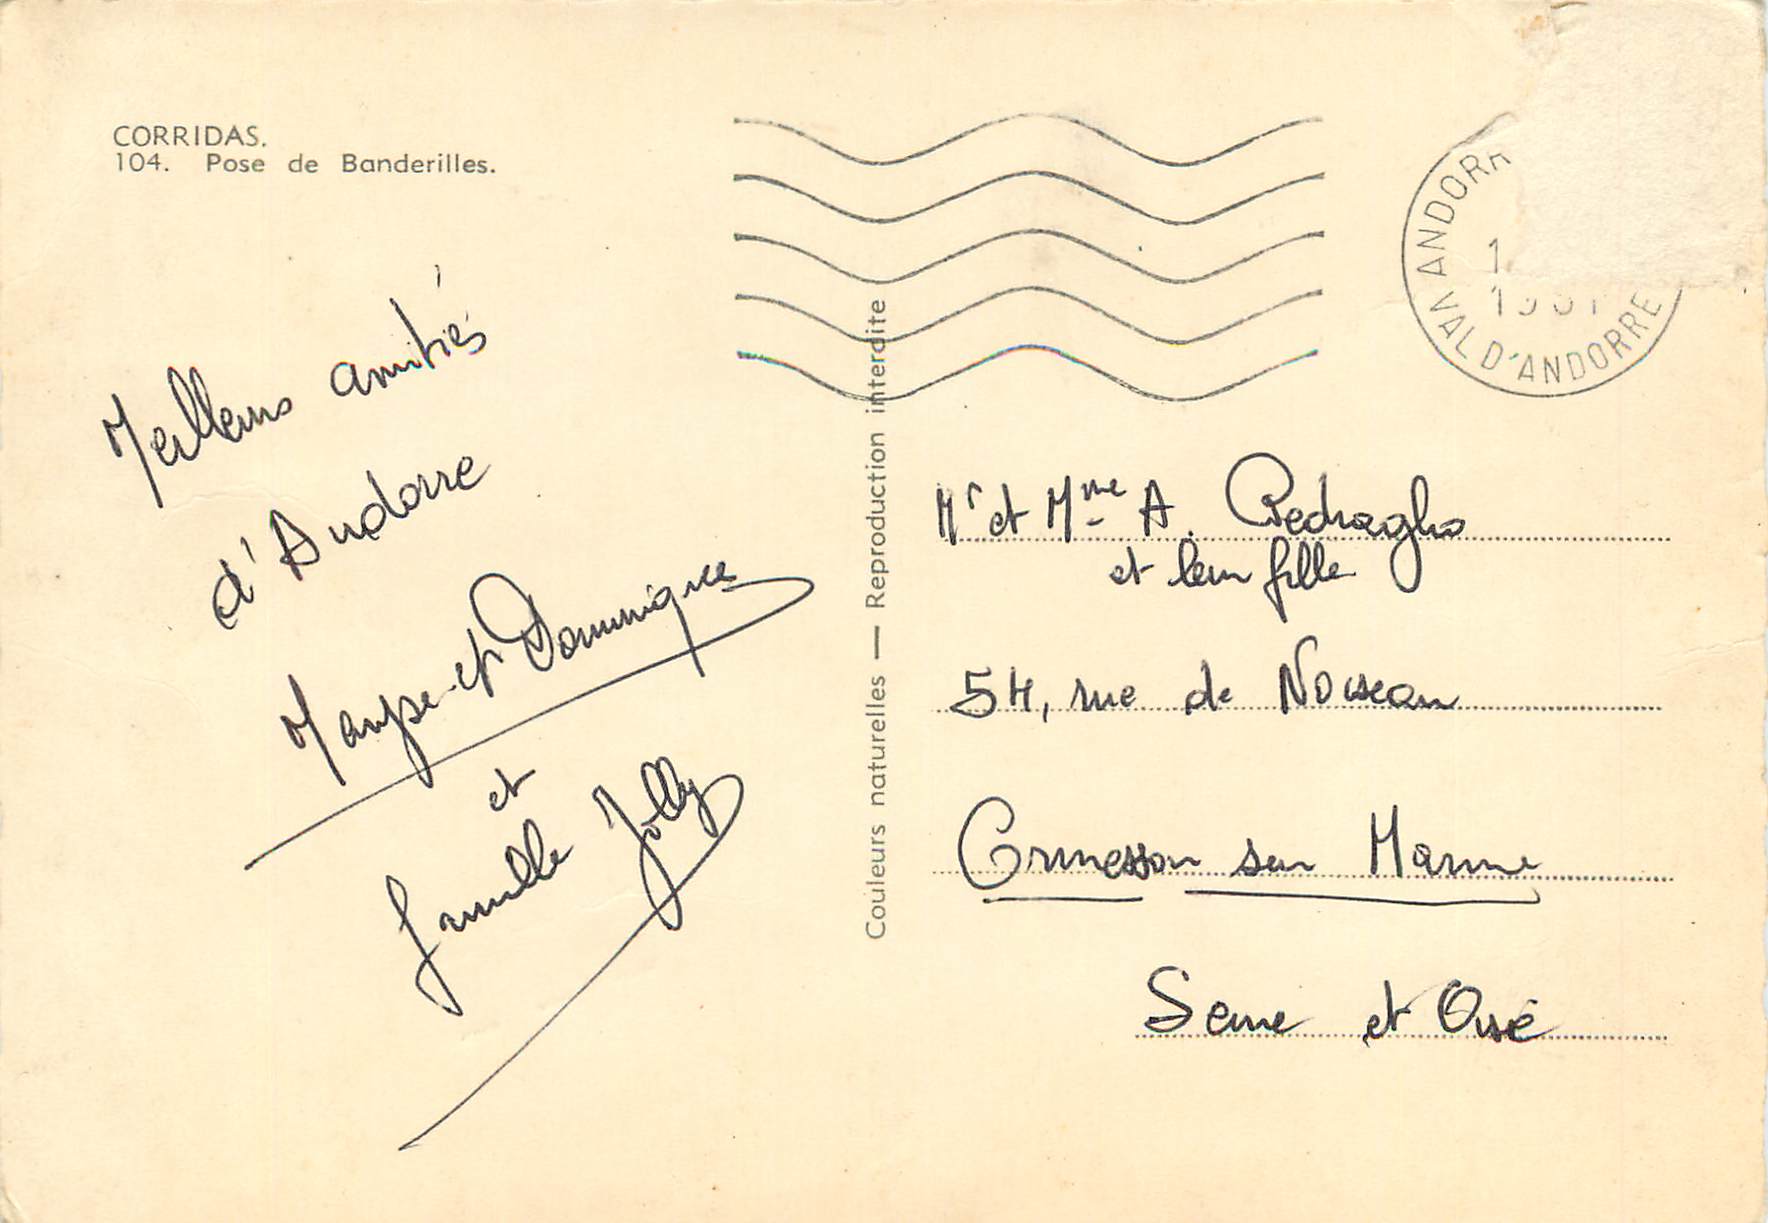 CORRIDAS.
104. Pose de Banderilles.
Meilleurs amitiés
d'Andorre
Maryse et Dominique
et
famille Jolly
Couleurs naturelles — Reproduction interdite
ANDORR
VAL D'ANDORRE
Mr et Mme A.
et leur fille
54, rue de Noiseau
Ormesson sur Marne
Seine et Oise